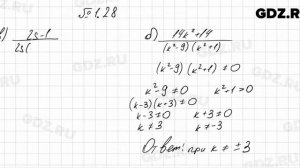 GDZ.RU
№ 1.28
2s-1
2s(
б) 14k²+14
(k²-9)(k²+1)
(k²-9)(k²+1) ≠ 0
k²-9 ≠ 0 k²-1 > 0
(k-3)(k+3) ≠ 0
k-3 ≠ 0 k+3 ≠ 0
k ≠ 3 k ≠ -3
Ответ: при k ≠ ±3
GDZ.RU